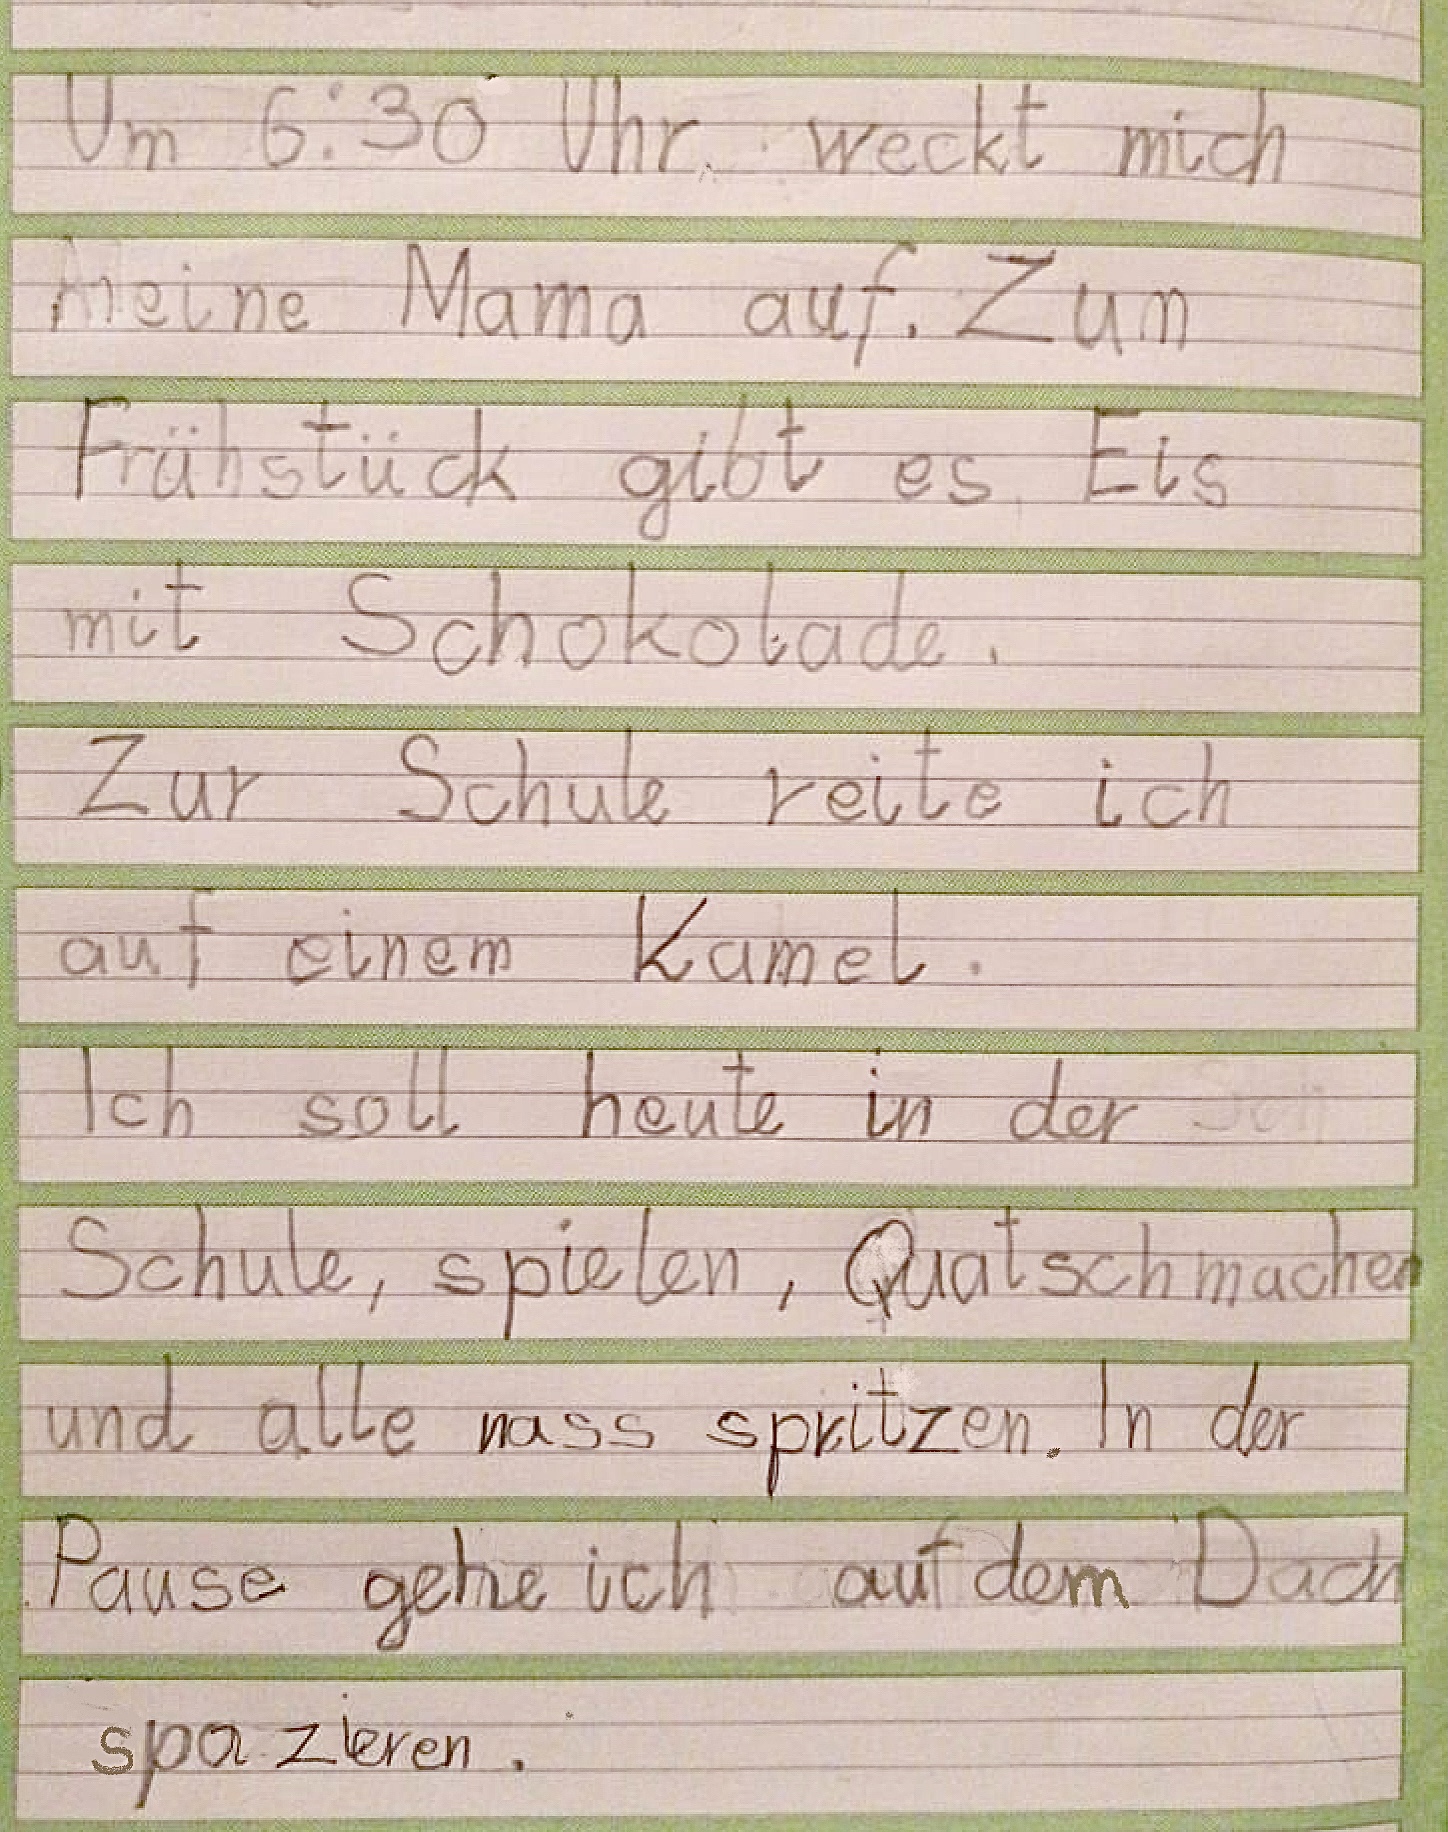 Um 6:30 Uhr weckt mich
meine Mama auf. Zum
Frühstück gibt es Eis
mit Schokolade.
Zur Schule reite ich
auf einem Kamel.
Ich soll heute in der
Schule, spielen, Quatschmachen
und alle nass spritzen. In der
Pause gehe ich auf dem Dach
spazieren.